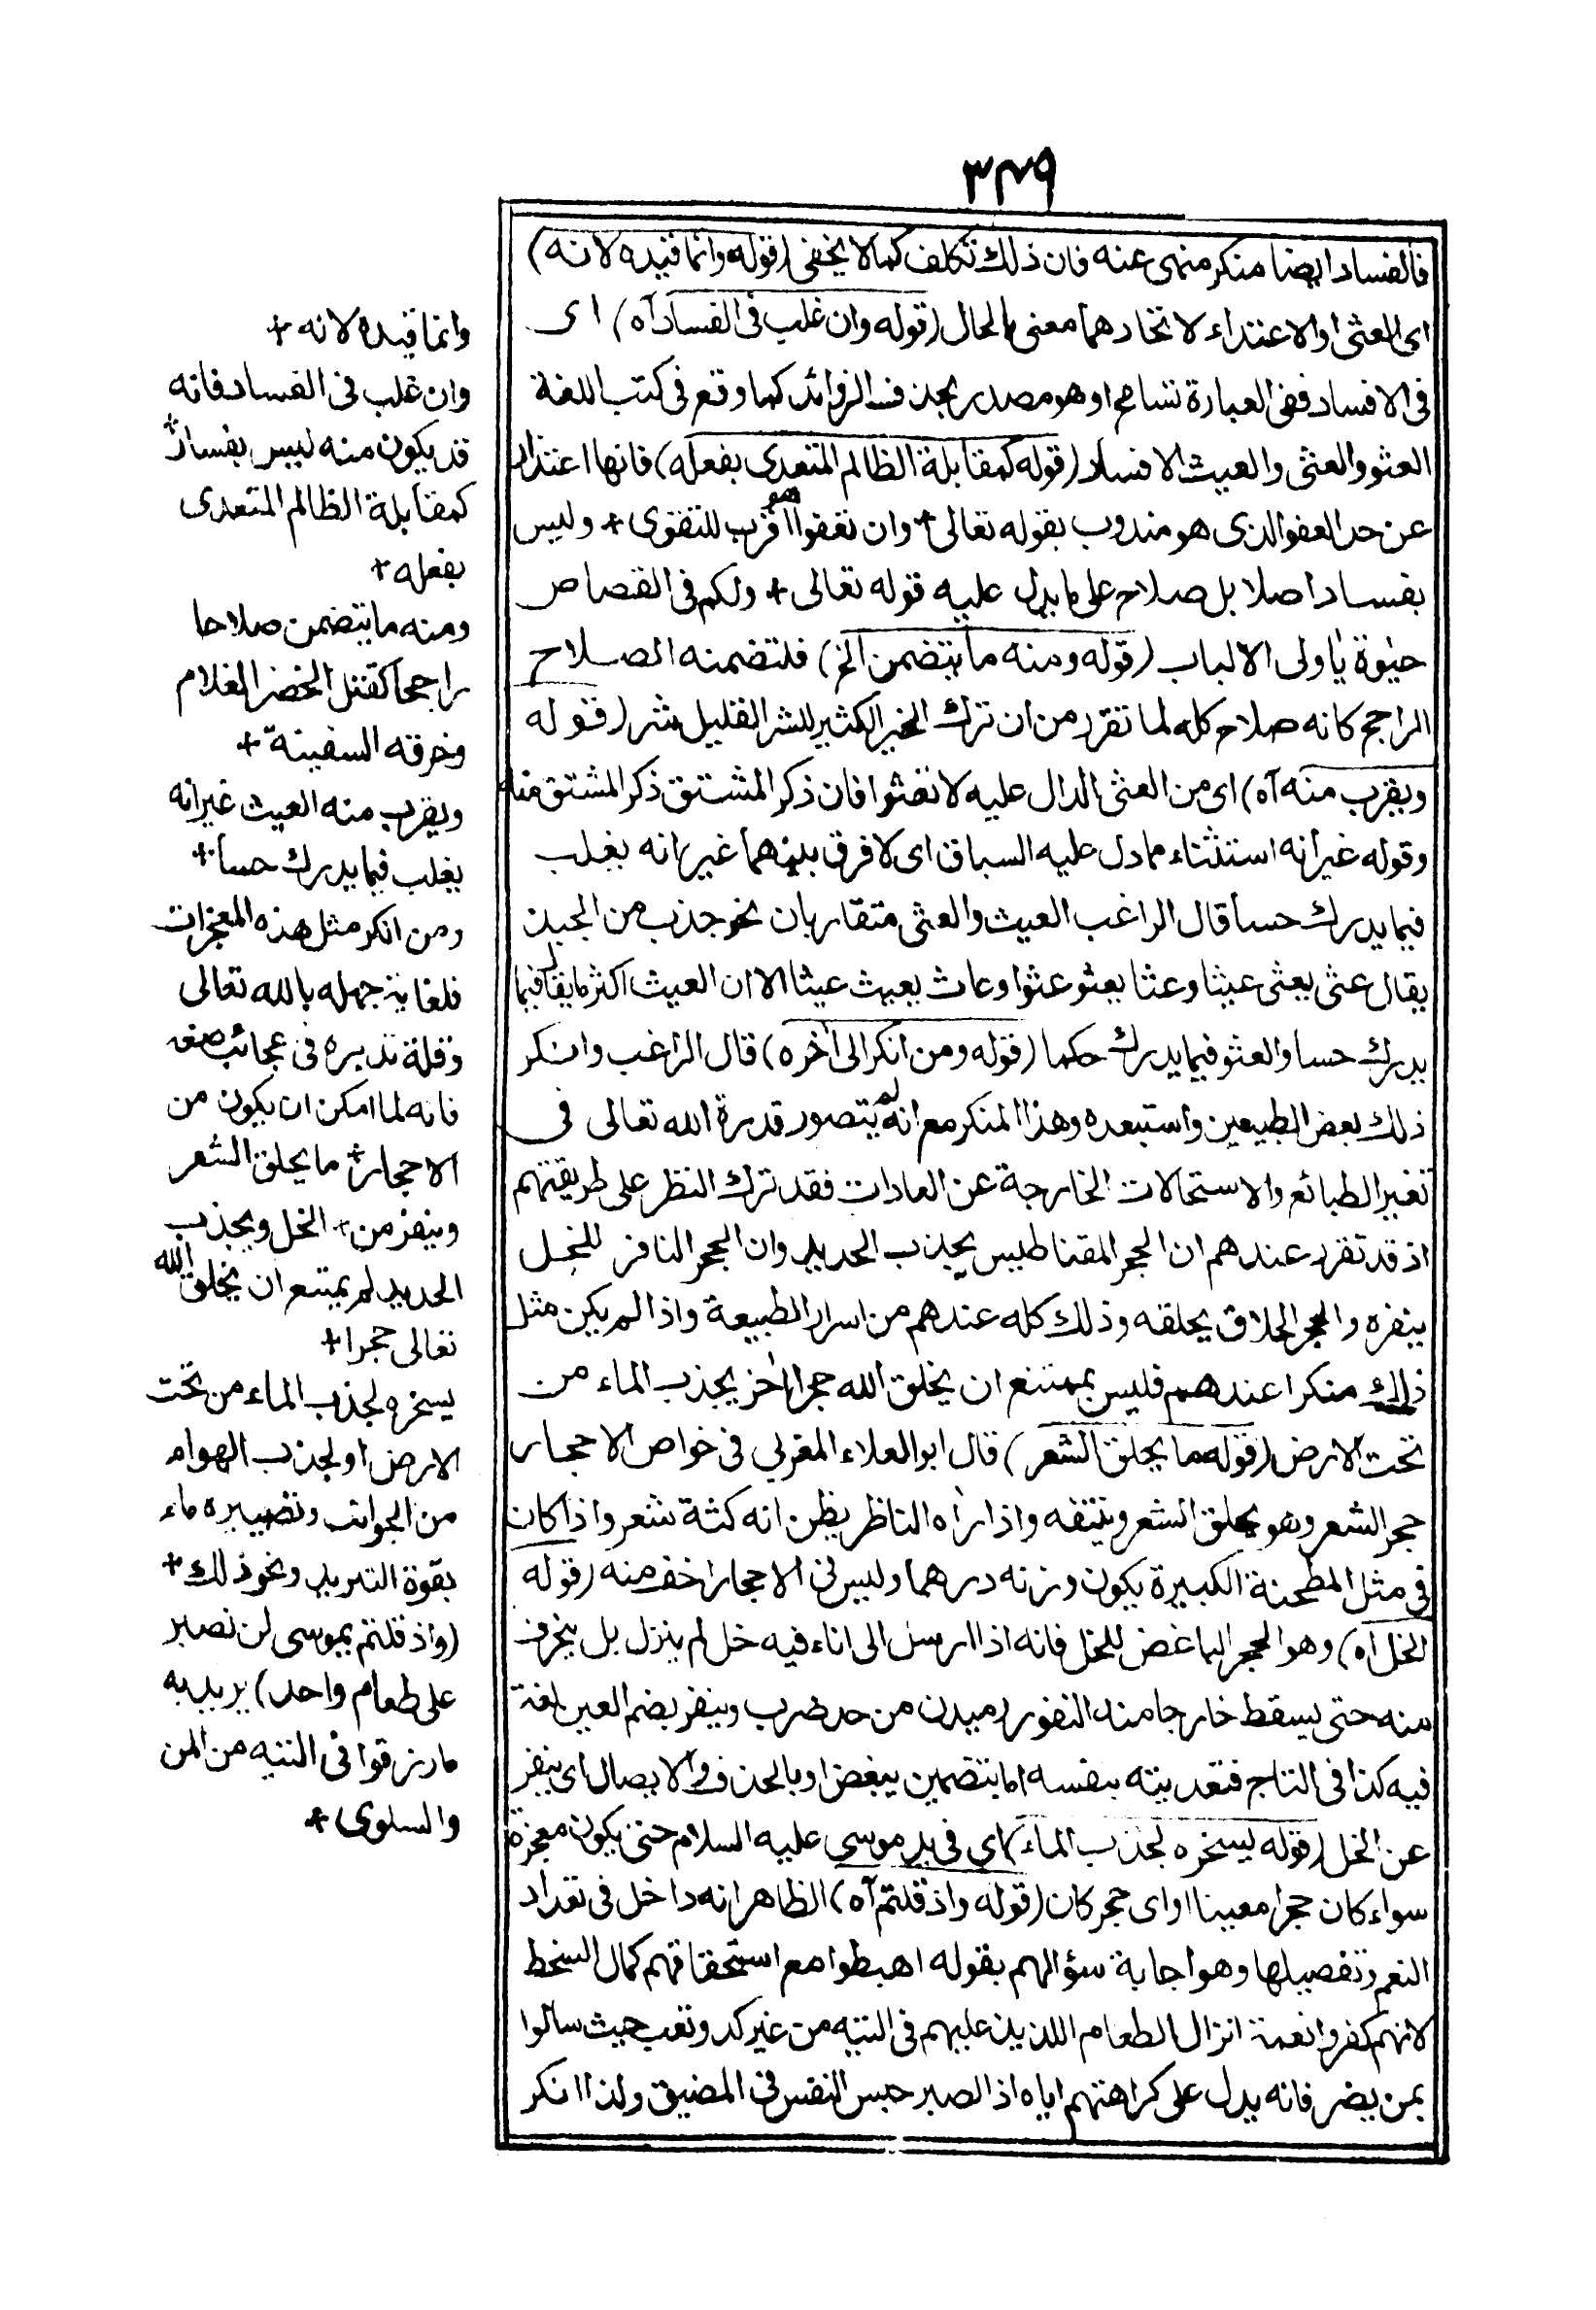 ٣٤٩
فالفساد ايضا منكر منهى عنه فان ذلك تكلف كما لا يخفى (قوله وانما قيده لانه)
اى العثى او الاعتداء لاتخادهما معنى بالحال (قوله وان غلب فى الفساد آه) اى
فى الافساد ففى العبارة تسامح او هو مصدر بحذف الزوائد كما وقع فى كتب اللغة
العثو والعثى والعيث الافساد (قوله كمقابلة الظالم المتعدى بفعله) فانها اعتداء
عن حد العفو الذى هو مندوب بقوله تعالى + وان تعفوا هو اقرب للتقوى + وليس
بفساد اصلا بل صلاح على ما يدل عليه قوله تعالى + ولكم فى القصاص
حيٰوة يٰاولى الالباب (قوله ومنه ما يتضمن الخ) فلتضمنه الصلاح
الراجح كانه صلاح كله لما تقرر من ان ترك الخير الكثير للشر القليل شر (قوله
ويقرب منه آه) اى من العثى الدال عليه لا تعثوا فان ذكر المشتق ذكر المشتق منه
وقوله غير انه استثناء مما دل عليه السباق اى لا فرق بينهما غير انه يغلب
فيما يدرك حسا قال الراغب العيث والعثى متقاربان نحو جذب من الجبذ
يقال عثى يعثى عيثا وعثا يعثو عثوا وعاث يعيث عيثا الا ان العيث اكثر ما يقال فيما
يدرك حسا والعثو فيما يدرك حكما (قوله ومن انكر الى آخره) قال الراغب وانكر
ذلك بعض الطبيعين واستبعده وهذا المنكر مع انه لم يتصور قدرة الله تعالى فى
تغير الطبائع والاستحالات الخارجة عن العادات فقد ترك النظر على طريقتهم
اذ قد تقرر عندهم ان الحجر المقناطيس يجذب الحديد وان الحجر النافز للخل
ينفزه والحجر الحلاق يحلقه وذلك كله عندهم من اسرار الطبيعة واذا لم يكن مثل
ذلك منكرا عندهم فليس بممتنع ان يخلق الله حجرا آخر يجذب الماء من
تحت الارض (قوله ما يحلق الشعر) قال ابو العلاء المغربى فى خواص الاحجار
حجر الشعر وهو يحلق الشعر وينتفه واذا رأه الناظر يظن انه كثة شعر واذا كان
فى مثل المطحنة الكبيرة يكون وزنه درهما وليس فى الاحجار اخف منه (قوله
الخل آه) وهو الحجر الباغض للخل فانه اذا ارسل الى اناء فيه خل لم ينزل بل ينحرف
منه حتى يسقط خارجا منه النفور رميدن من حد ضرب وينفر بضم العين لغة
فيه كذا فى التاج فتعديته بنفسه اما بتضمين يبغض او بالحذف والايصال اى ينفر
عن الخل (قوله يسخره لجذب الماء) اى فى يد موسى عليه السلام حتى يكون معجزة
سواء كان حجرا معينا او اى حجر كان (قوله واذ قلتم آه) الظاهر انه داخل فى تعداد
النعم وتفصيلها وهو اجابة سؤالهم بقوله اهبطوا مع استحقاقهم كمال السخط
لانهم كفروا نعمة انزال الطعام اللذيذ عليهم فى التيه من غير كد وتعب حيث سالوا
بمن يضر فانه يدل على كراهتهم اياه اذ الصبر حبس النفس فى المضيق ولذا انكر
وانما قيده لانه +
وان غلب فى الفساد فانه
قد يكون منه ليس بفساد +
كمقابلة الظالم المتعدى
بفعله +
ومنه ما يتضمن صلاحا
راجحا كقتل الخضر الغلام
وخرقه السفينة +
ويقرب منه العيث غير انه
يغلب فيما يدرك حسا +
ومن انكر مثل هذه المعجزات
فلغاية جهله بالله تعالى
وقلة تدبره فى عجائب صنعه
فانه لما امكن ان يكون من
الاحجار + ما يحلق الشعر
وينفر من + الخل ويجذب
الحديد لم يمتنع ان يخلق الله
تعالى حجرا +
يسخره لجذب الماء من تحت
الارض او لجذب الهواء
من الجوانب وتصييره ماء
بقوة التبريد ونحو ذلك +
(واذ قلتم يموسى لن نصبر
على طعام واحد) يريد به
ما رزقوا فى التيه من المن
والسلوى +